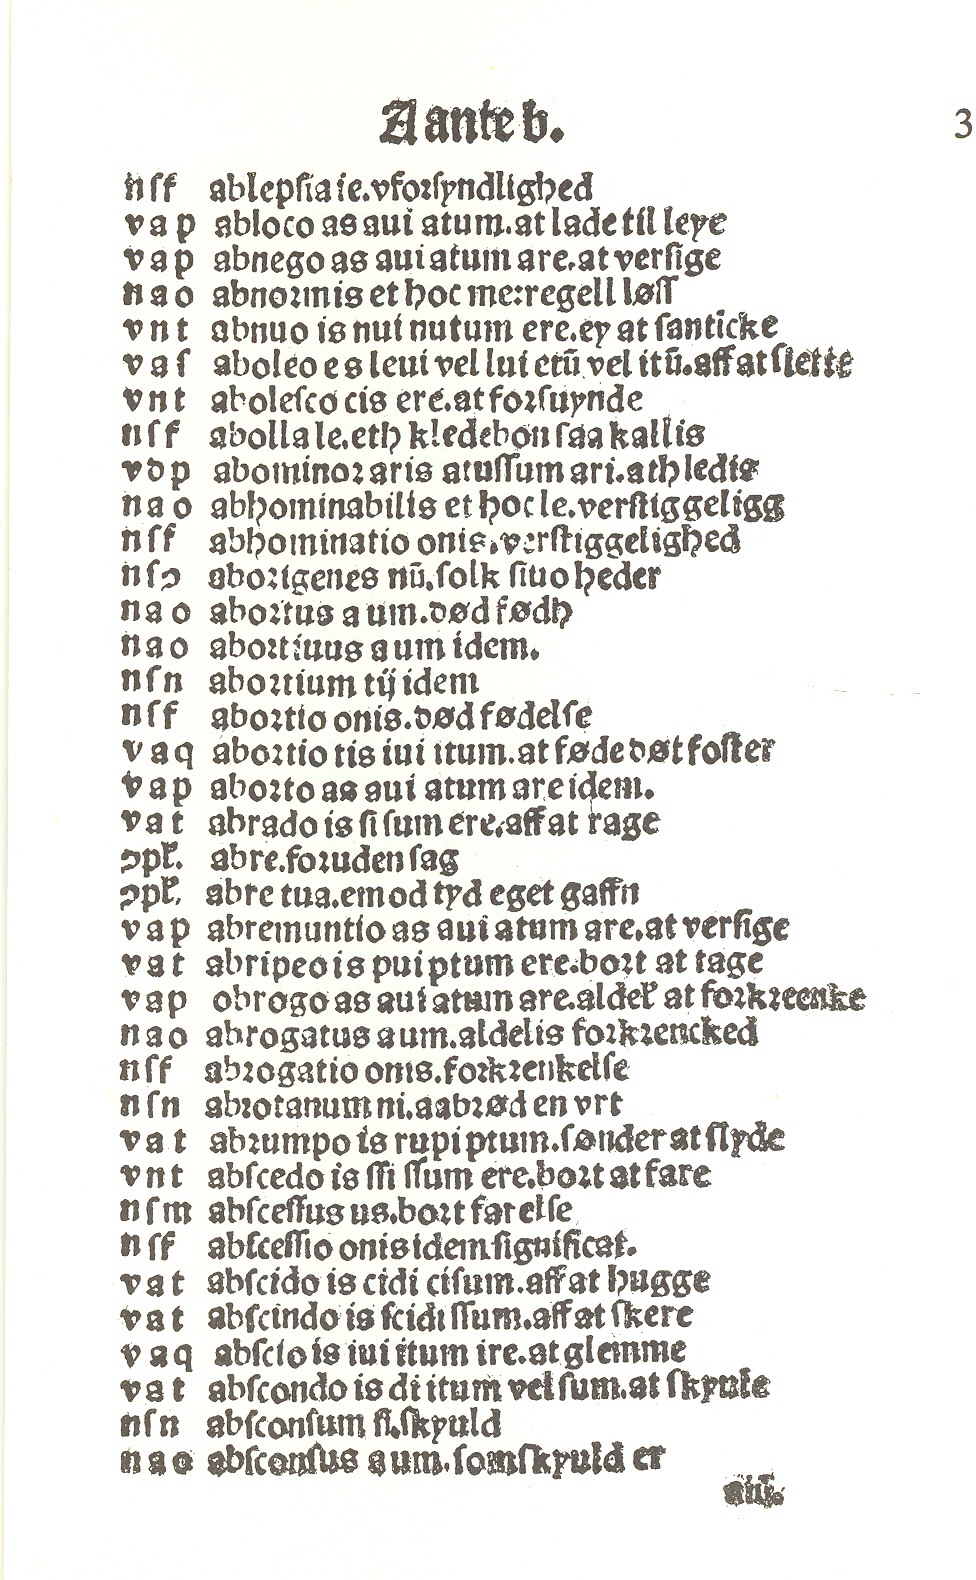 A ante b.
3
n ſ f ablepſia ie. vforſyndlighed
v a p abloco as aui atum. at lade til leye
v a p abnego as aui atum are. at verſige
n a o abnormis et hoc me: regell løſſ
v n t abnuo is nui nutum ere. ey at ſanticke
v a ſ aboleo es leui vel lui etū vel itū. aff at ſlette
v n t aboleſco cis ere. at forſuynde
n ſ f abolla le. eth kledebon ſaa kallis
v d p abominor aris atuſſum ari. ath ledis
n a o abhominabilis et hoc le. verſtiggeligg
n ſ f abhominatio onis. verſtiggelighed
n ſ ɔ aborigenes nū. folk ſiuo heder
n a o abortus a um. død fødh
n a o abortiuus a um idem.
n ſ n abortium tij idem
n ſ f abortio onis. død fødelſe
v a q abortio tis iui itum. at føde døt foſter
v a p aborto as aui atum are idem.
v a t abrado is ſi ſum ere. aff at rage
ɔpꝉ. abre. foruden ſag
ɔpꝉ. abre tua. emod tyd eget gaffn
v a p abremuntio as aui atum are. at verſige
v a t abripeo is pui ptum ere. bort at tage
v a p obrogo as aui atum are. aldeꝉ at forkreenke
n a o abrogatus a um. aldelis forkrencked
n ſ f abrogatio onis. forkrenkelſe
n ſ n abrotanum ni. aabrød en vrt
v a t abrumpo is rupi ptum. ſønder at ſlyde
v n t abſcedo is ſſi ſſum ere. bort at fare
n ſ m abſceſſus us. bort farelſe
n ſ f abſceſſio onis idem ſignificat.
v a t abſcido is cidi ciſum. aff at hugge
v a t abſcindo is ſcidi ſſum. aff at ſkere
v a q abſcio is iui itum ire. at glemme
v a t abſcondo is di itum vel ſum. at ſkyule
n ſ n abſconſum ſi. ſkyuld
n a o abſconſus a um. ſom ſkyuld er